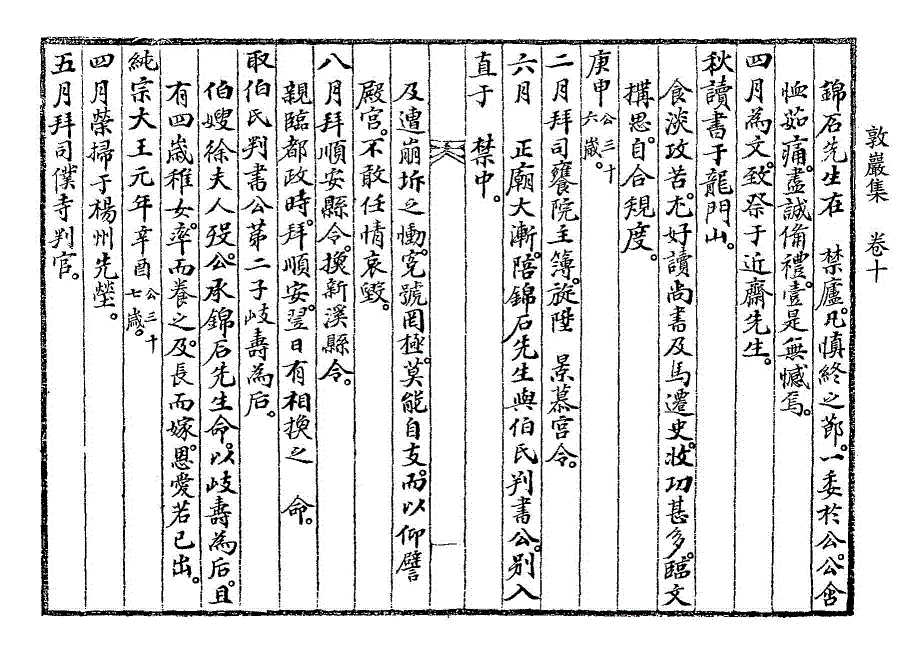 敦巖集　卷十
錦石先生在　禁廬。凡愼終之節。一委於公。公含
恤茹痛。盡誠備禮。壹是無憾焉。
四月爲文。致祭于近齋先生。
秋讀書于龍門山。
食淡攻苦。尤好讀尙書及馬遷史。收功甚多。臨文
搆思。自合䂓度。
庚申公三十六歲。
二月拜司饔院主簿。旋陞　景慕宮令。
六月　正廟大漸。陪錦石先生與伯氏判書公。別入
直于　禁中。
及遭崩坼之慟。寃號罔極。莫能自支。而以仰譬
殿宮。不敢任情哀毁。
八月拜順安縣令。換新溪縣令。
親臨都政時。拜順安。翌日有相換之　命。
取伯氏判書公第二子岐壽爲后。
伯嫂徐夫人歿。公承錦石先生命。以岐壽爲后。且
有四歲稚女。率而養之。及長而嫁。恩愛若已出。
純宗大王元年辛酉公三十七歲。
四月榮掃于楊州先塋。
五月拜司僕寺判官。